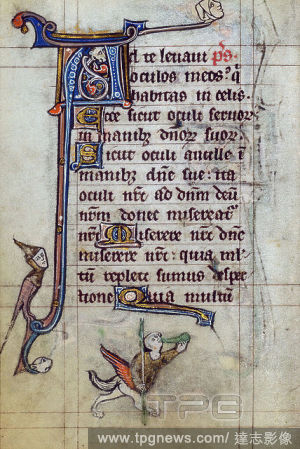 Ad te levavi ps
oculos meos· q
habitas in celis.
Ecce sicut oculi servor
in manibz dnor suor
Sicut oculi ancille i
manibz dne sue· ita
oculi nri ad dnm deu
nrm donec misereat
nri Miserere nri dne
miserere nri· quia mul
tu repleti sumus despec
tione Quia multum
TPG
www.tpgnews.com/影像/達志影像